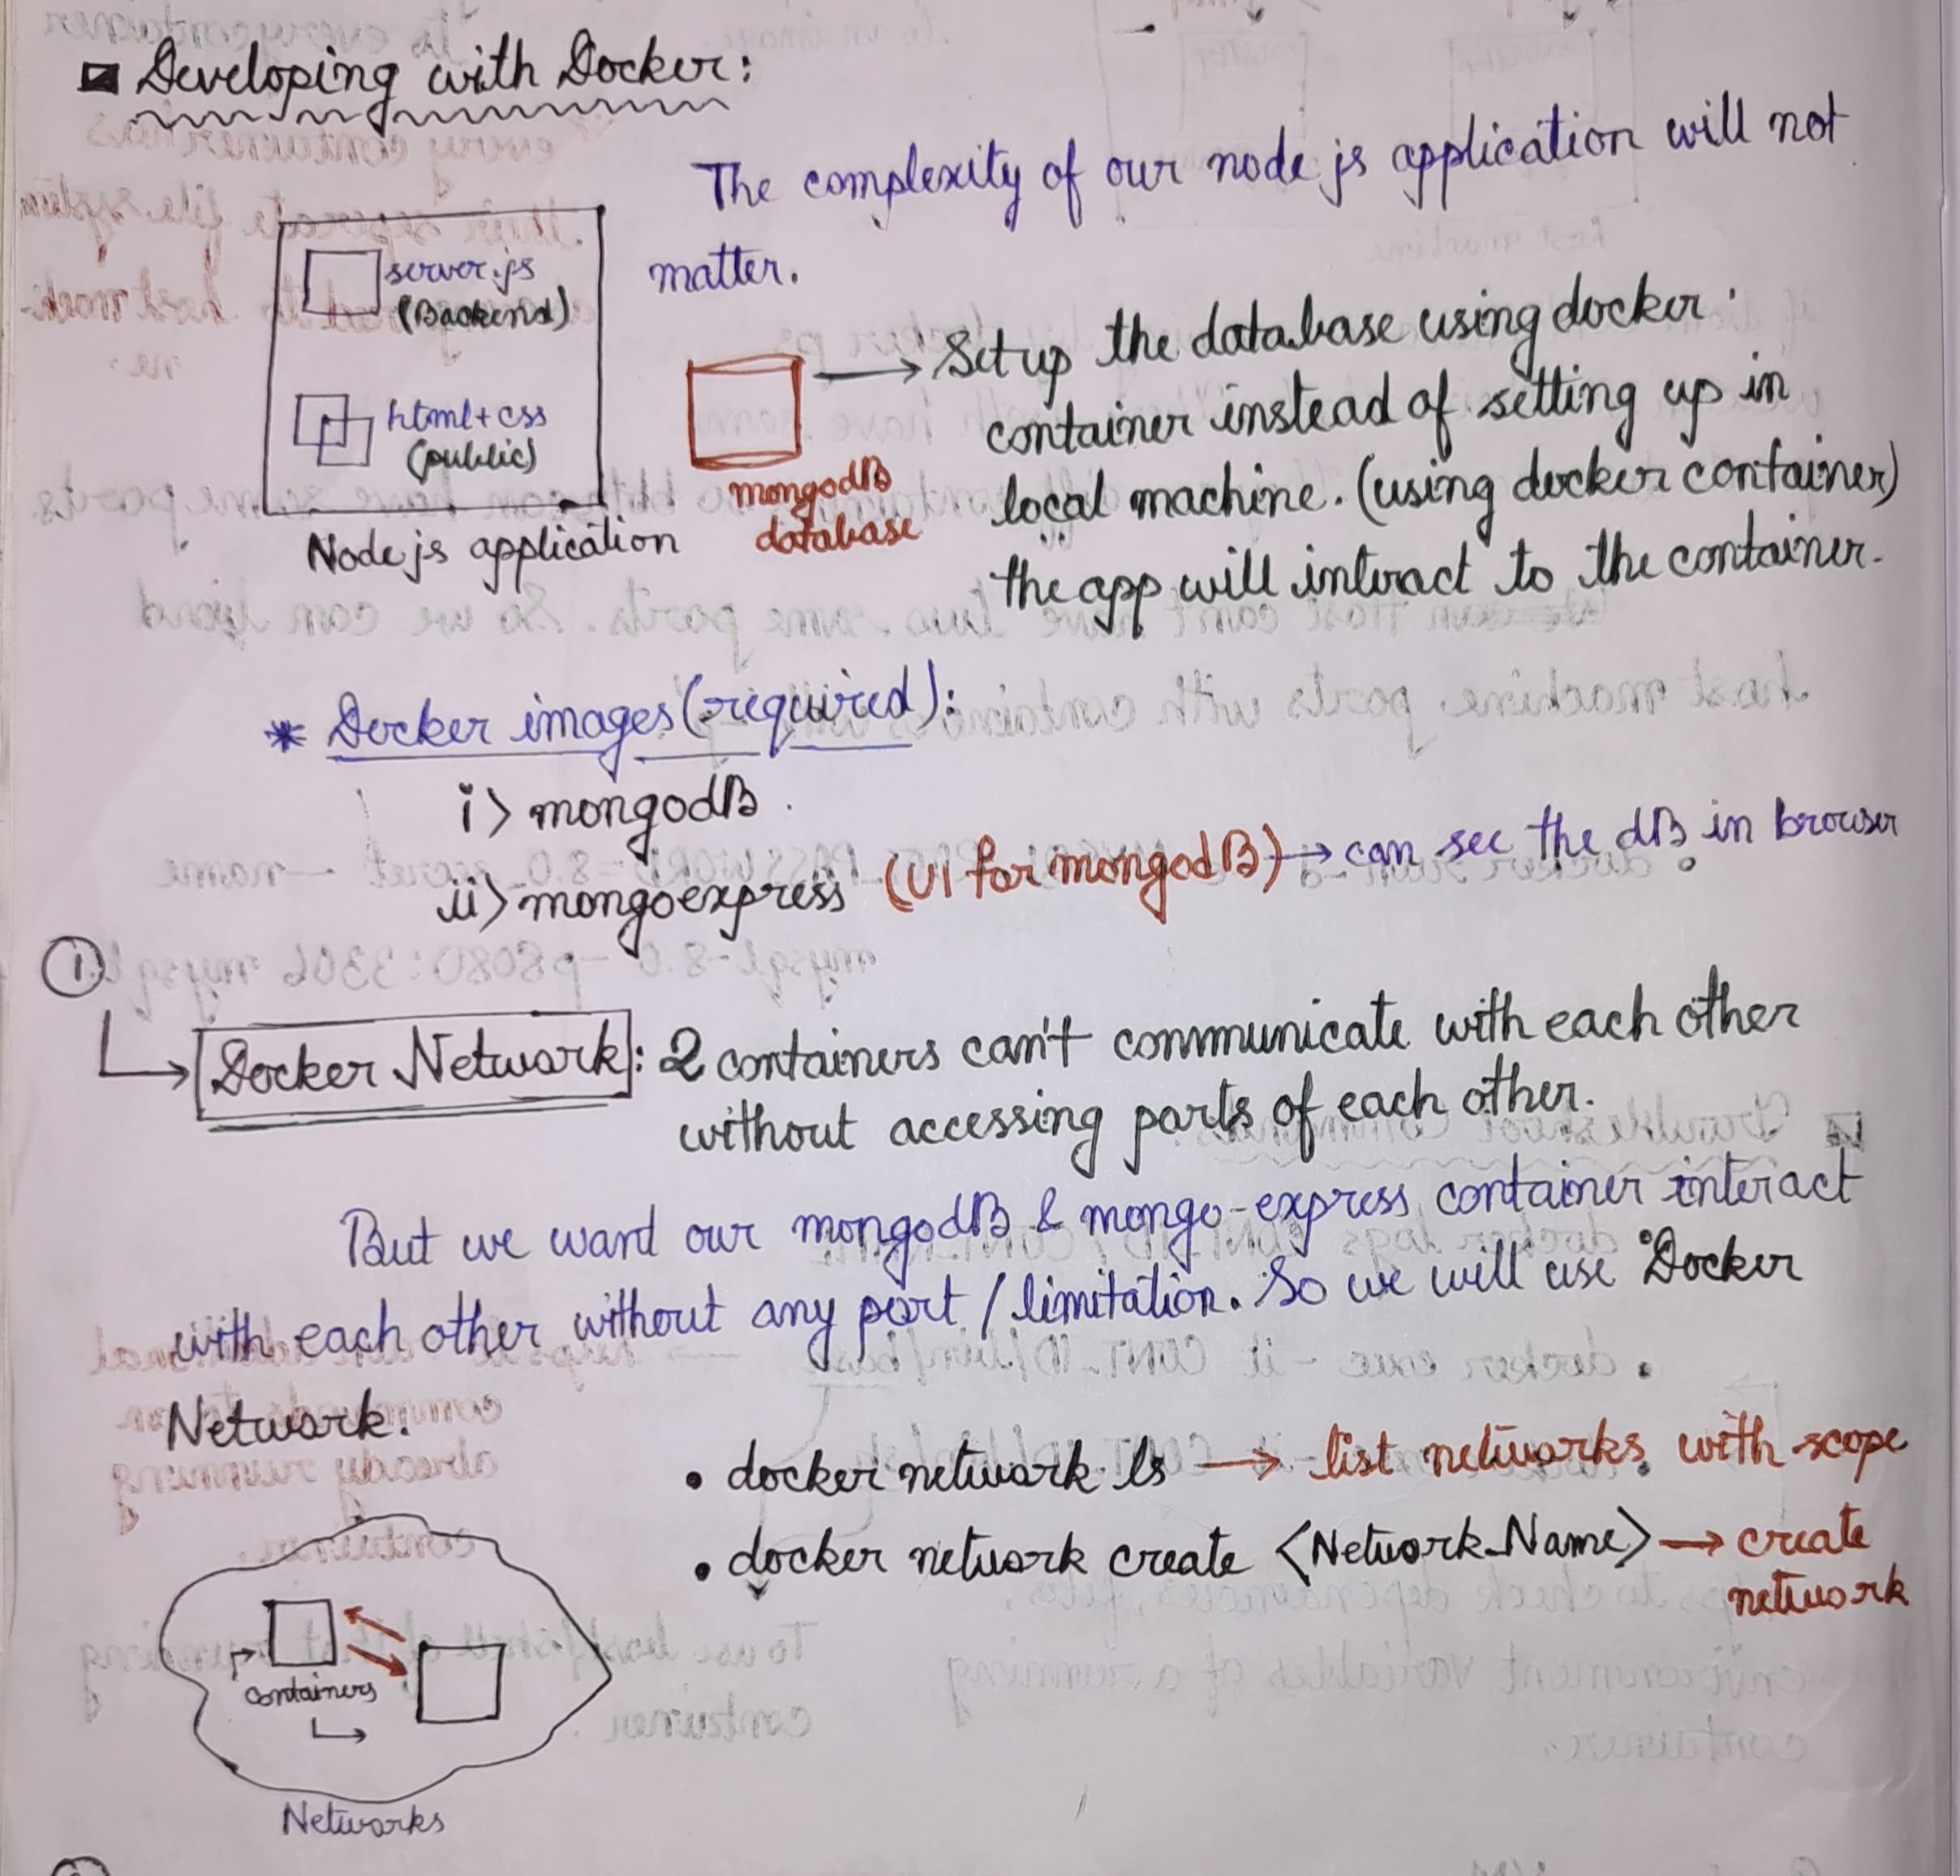 Developing with Docker:
The complexity of our node js application will not
matter.
server.js
(Backend)
html+css
(public)
Node js application
mongodB
database
→ Setup the database using docker
container instead of setting up in
local machine. (using docker container)
the app will interact to the container.
* Docker images (required):
i> mongodB
ii> mongoexpress (UI for mongodB) → can see the dB in browser
1
Docker Network: 2 containers can't communicate with each other
without accessing ports of each other.
But we want our mongodB & mongo-express container interact
with each other without any port / limitation. So we will use Docker
Network.
• docker network ls → list networks with scope
• docker network create <Network_Name> → create
network
containers
Networks